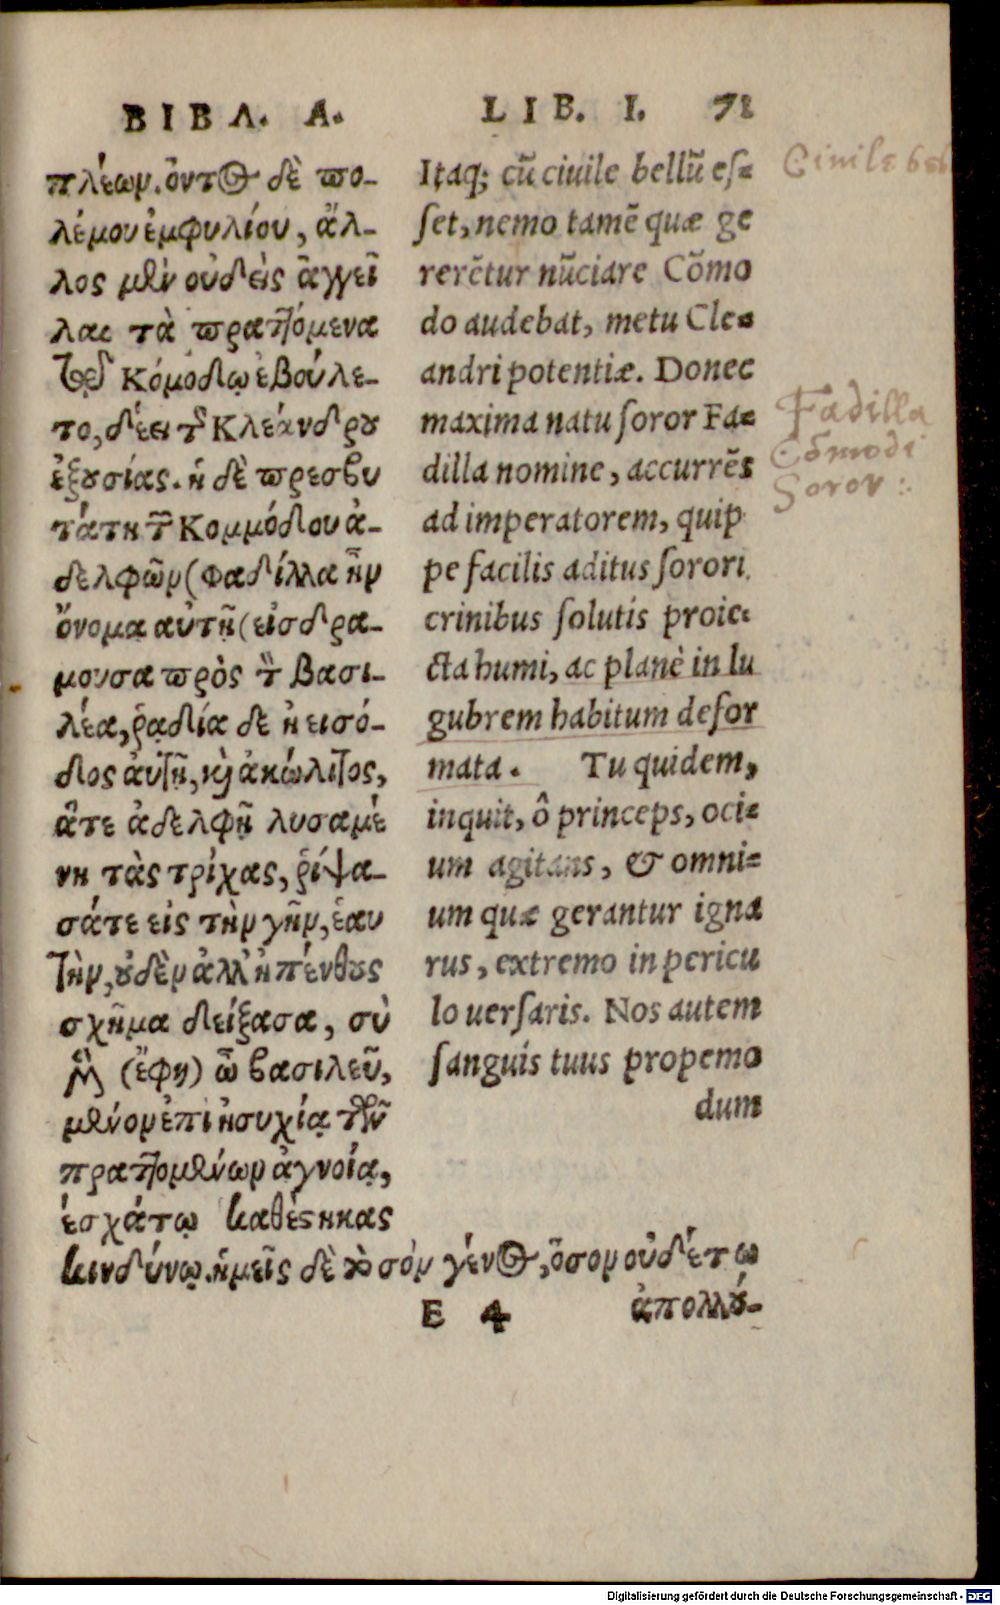 ΒΙΒΛ. Α.
πλέων. ὄντος δὲ πο-
λέμου ἐμφυλίου, ἄλ-
λος μὲν οὐδεὶς ἀγγεῖ
λαι τὰ πραττόμενα
τῷ Κόμοδῳ ἐβούλε-
το, δέει τοῦ Κλεάνδρου
ἐξουσίας. ἡ δὲ πρεσβυ
τάτη τῶν Κομμόδου ἀ-
δελφῶν (Φαδίλλα ἦν
ὄνομα αὐτῇ (εἰσδρα-
μουσα πρὸς τὸν βασι-
λέα, ῥᾳδία δὲ ἡ εισό-
δος ἀυτῇ, καὶ ἀκώλυτος,
ἅτε ἀδελφῇ λυσαμέ
νη τὰς τρίχας, ῥίψα-
σάτε εἰς τὴν γῆν, ἑαυ
τὴν, οὐδὲν ἀλλ' ἢ πένθους
σχῆμα δείξασα, σὺ
μὲν (ἔφη) ὦ βασιλεῦ,
μένων ἐπὶ ἡσυχίᾳ τῶν
πραττομένων ἀγνοίᾳ,
ἐσχάτῳ καθέστηκας
κινδύνῳ. ἡμεῖς δὲ τὸ σὸν γένος, ὅσον οὐδέπω
LIB. I. 71
Itaq; cū ciuile bellū es=
set, nemo tamē quæ ge
rerētur nūciare Cōmo
do audebat, metu Cle=
andri potentiæ. Donec
maxima natu soror Fa=
dilla nomine, accurrēs
ad imperatorem, quip
pe facilis aditus sorori
crinibus solutis proie=
cta humi, ac planè in lu
gubrem habitum defor
mata. Tu quidem,
inquit, ô princeps, oci=
um agitans, & omni=
um quæ gerantur igna
rus, extremo in pericu
lo uersaris. Nos autem
sanguis tuus propemo
dum
E 4 ἀπολλού-
Ciuile bel
Fadilla
Cōmodi
Soror:
Digitalisierung gefördert durch die Deutsche Forschungsgemeinschaft - DFG